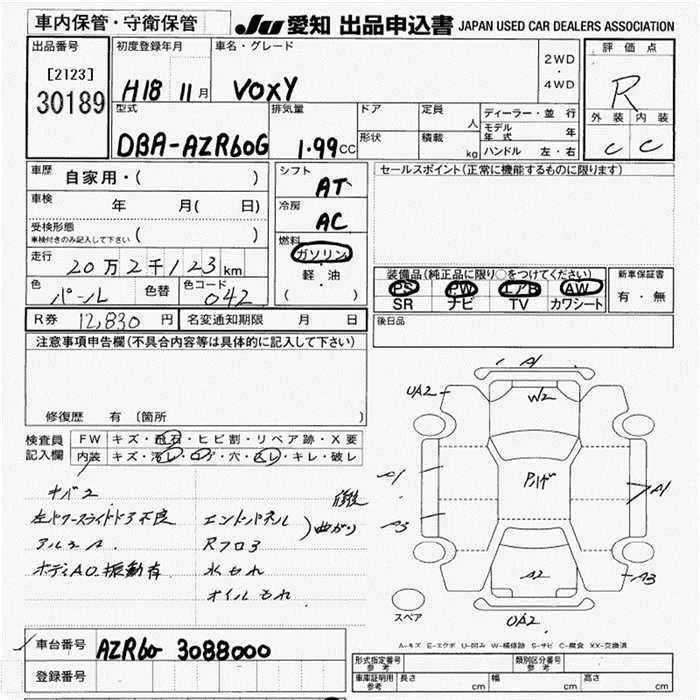 車内保管・守衛保管
JU 愛知 出品申込書 JAPAN USED CAR DEALERS ASSOCIATION
出品番号
[2123]
30189
初度登録年月
H18 11月
車名・グレード
VOXY
2WD
・
4WD
評価点
R
外装 内装
C C
型式
DBA-AZR60G
排気量
1.99cc
ドア
形状
定員
人
積載
kg
ディーラー・並行
モデル年式 年
ハンドル 左・右
車歴 自家用・( )
車検 年 月( 日)
受検形態
車検付きのみ記入して下さい ( )
走行 20万2千123km
色 パール 色替 色コード 042
R券 12,830 円 名変通知期限 月 日
シフト
AT
冷房
AC
燃料
ガソリン
・
軽・油
( )
セールスポイント(正常に機能するものに限ります)
装備品(純正品に限り○をつけてください)
PS PW エアB AW
SR ナビ TV カワシート
新車保証書
有・無
後日品
注意事項申告欄(不具合内容等は具体的に記入して下さい)
修復歴 有 〔箇所 〕
検査員記入欄
FW キズ・飛石・ヒビ割・リペア跡・X要
内装 キズ・汚レ・コゲ・穴・スレ・キレ・破レ
左パワースライドドア不良
エンドパネル
曲がり
アルミA
Rフロア
ボディAO 振動有
水もれ
オイルもれ
A1
UA2
W2
A1
A1
A3
A3
A2
UA2
スペア
A-キズ E-エクボ U-凹み W-補修跡 S-サビ C-腐食 XX-交換済
車台番号 AZR60-3088000
登録番号
形式指定番号 参考
類別区分番号 参考
車庫証明用 参考 長さ cm 幅 cm 高さ cm